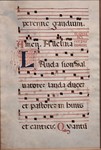 perenne gaudium.
Amen.
Lauda sion sal
uatorem lauda ducem
et pastorem in himnis
et canticis Quantum